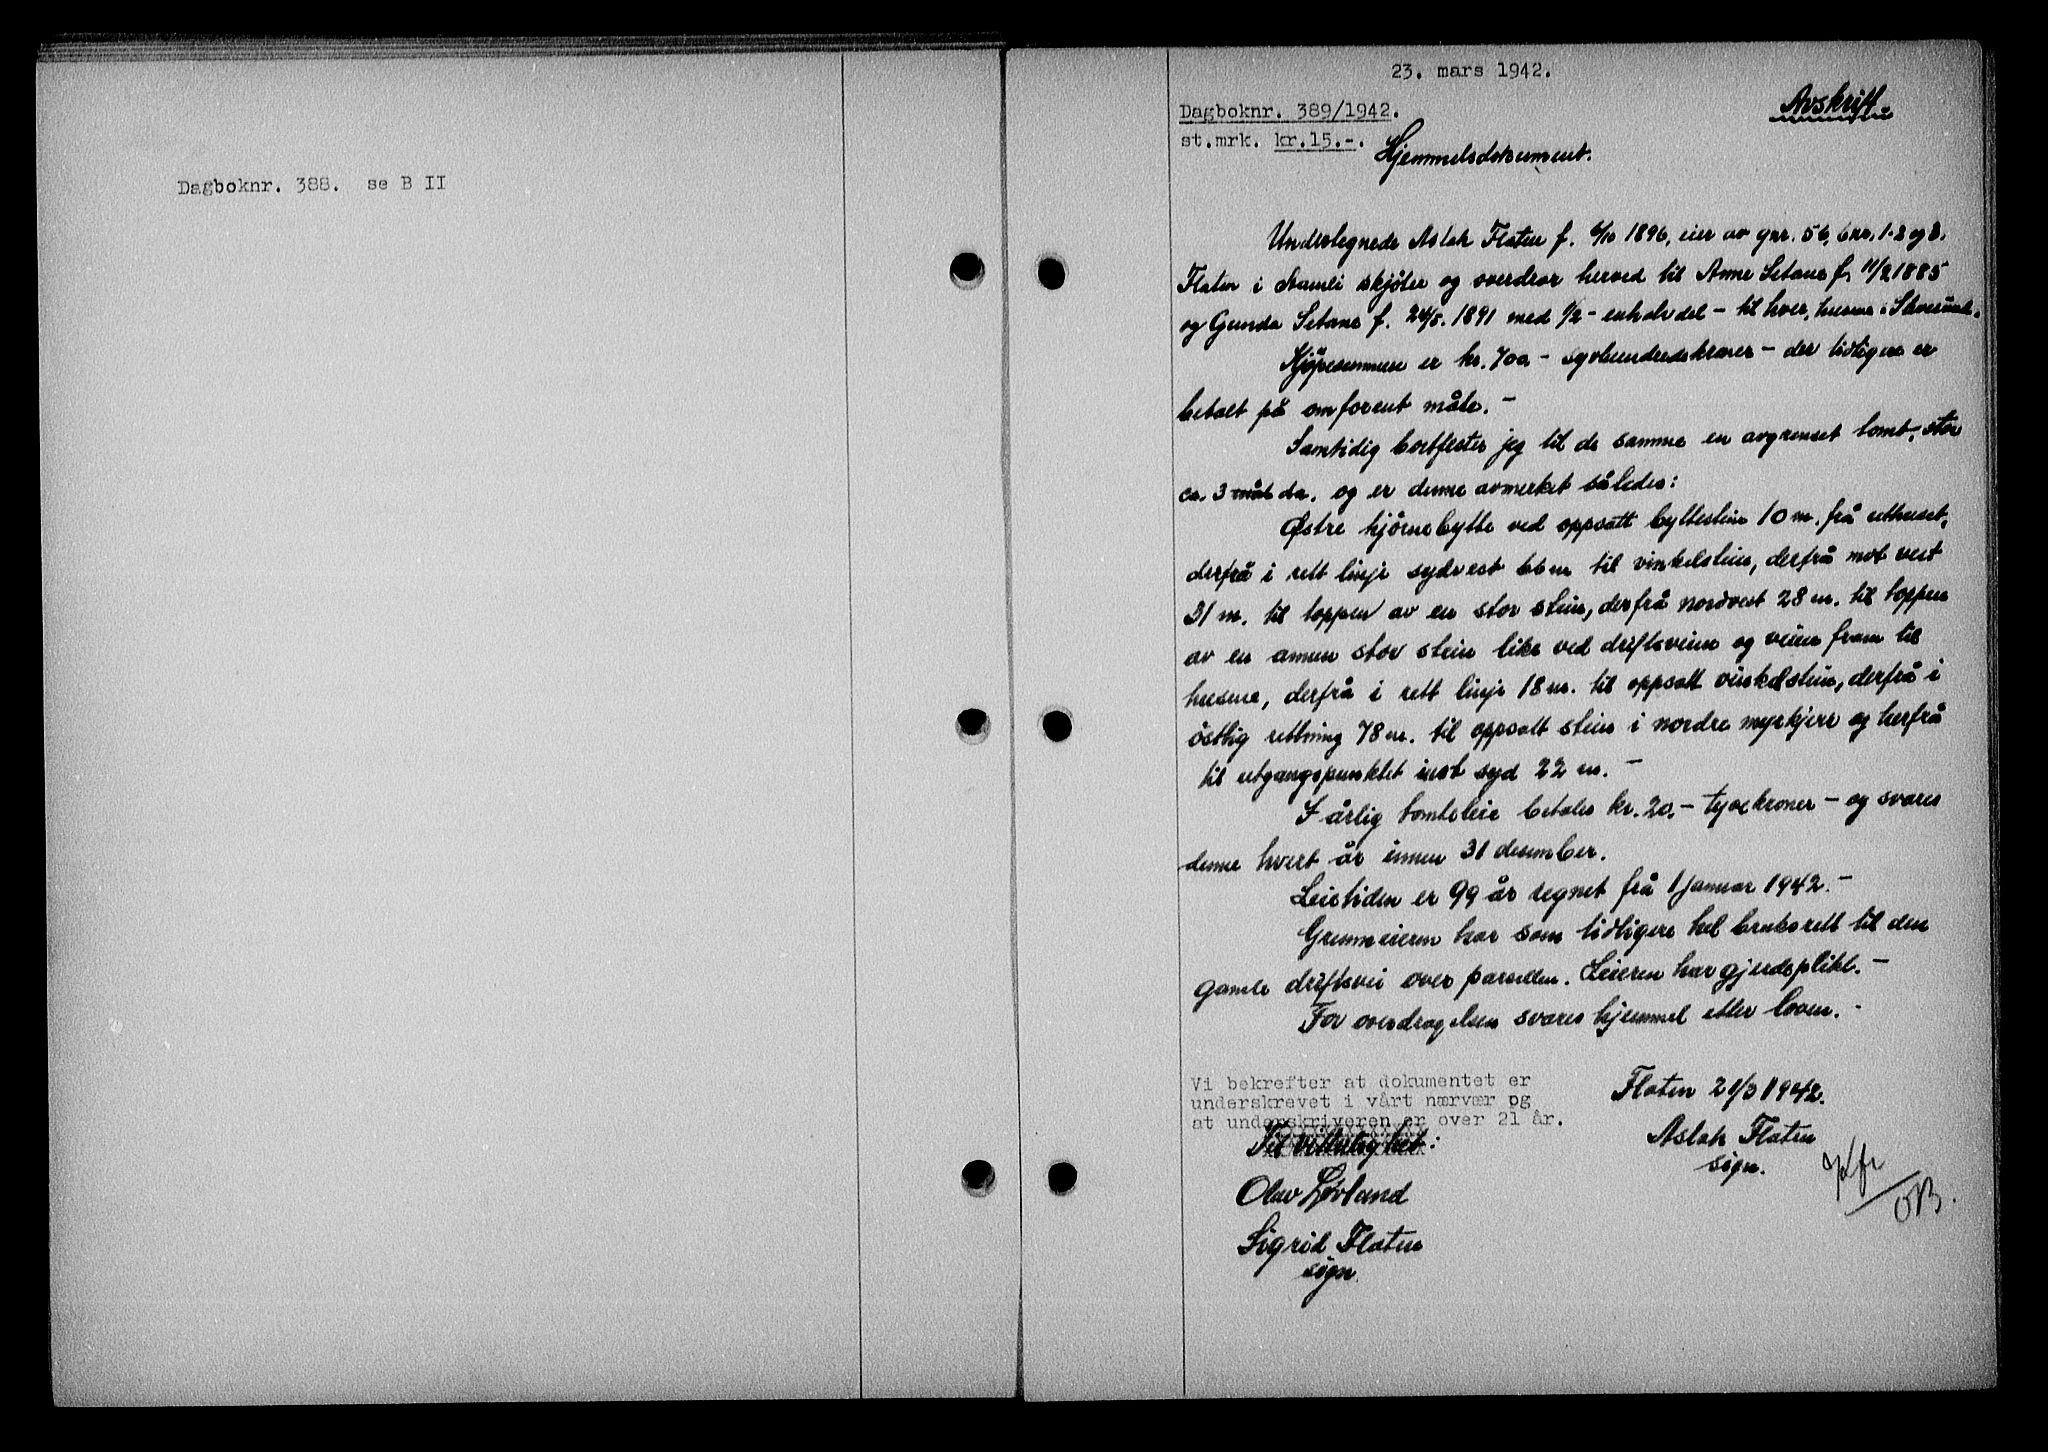 Dagboknr. 388. se B II
23. mars 1942.
Avskrift.
Dagboknr. 389/1942.
st.mrk. kr.15.-.
Hjemmelsdokument.
Undertegnede Aslak Flaten f. 6/10 1896, eier av gnr. 56, bnr. 1-2 og 3.
Flaten i Åamli skjøter og overdrar herved til Anne Setane f. 11/2 1885
og Gunda Setane f. 24/5. 1891 med 1/2 - enhalvdel - til hver, husene i
Kjøpesummen er kr. 700 - syvhundredekroner - der tidligere er
betalt på omforent måte. -
Samtidig bortfester jeg til de samme en avgrenset tomt, stor
ca. 3 mål da. og er denne avmerket således:
Østre hjørnebytte ved oppsatt byttestein 10 m. frå uthuset,
derfrå i rett linje sydvest 66 m til vinkelstein, derfrå mot vest
31 m. til toppen av en stor stein, derfrå nordvest 28 m. til toppen
av en annen stor stein like ved driftsveien og veien fram til
husene, derfrå i rett linje 18 m. til oppsatt vinkelstein, derfrå i
østlig rettning 78 m. til oppsatt stein i nordre myrkjerr og herfrå
til utgangspunktet imot syd 22 m. -
I årlig tomteleie betales kr. 20.- tyvekroner - og svares
denne hvert år innen 31 desember.
Leietiden er 99 år regnet frå 1 januar 1942. -
Grunneieren har som tidligere hel bruksrett til den
gamle driftsvei over parsellen. Leieren har gjerdeplikt. -
For overdragelsen svares hjemmel etter loven. -
Vi bekrefter at dokumentet er
underskrevet i vårt nærvær og
at underskriveren er over 21 år.
Til vitterlighet:
Flaten 21/3 1942.
Aslak Flaten
sign.
Olav Løvland
Sigrid Flaten
sign.
OB.